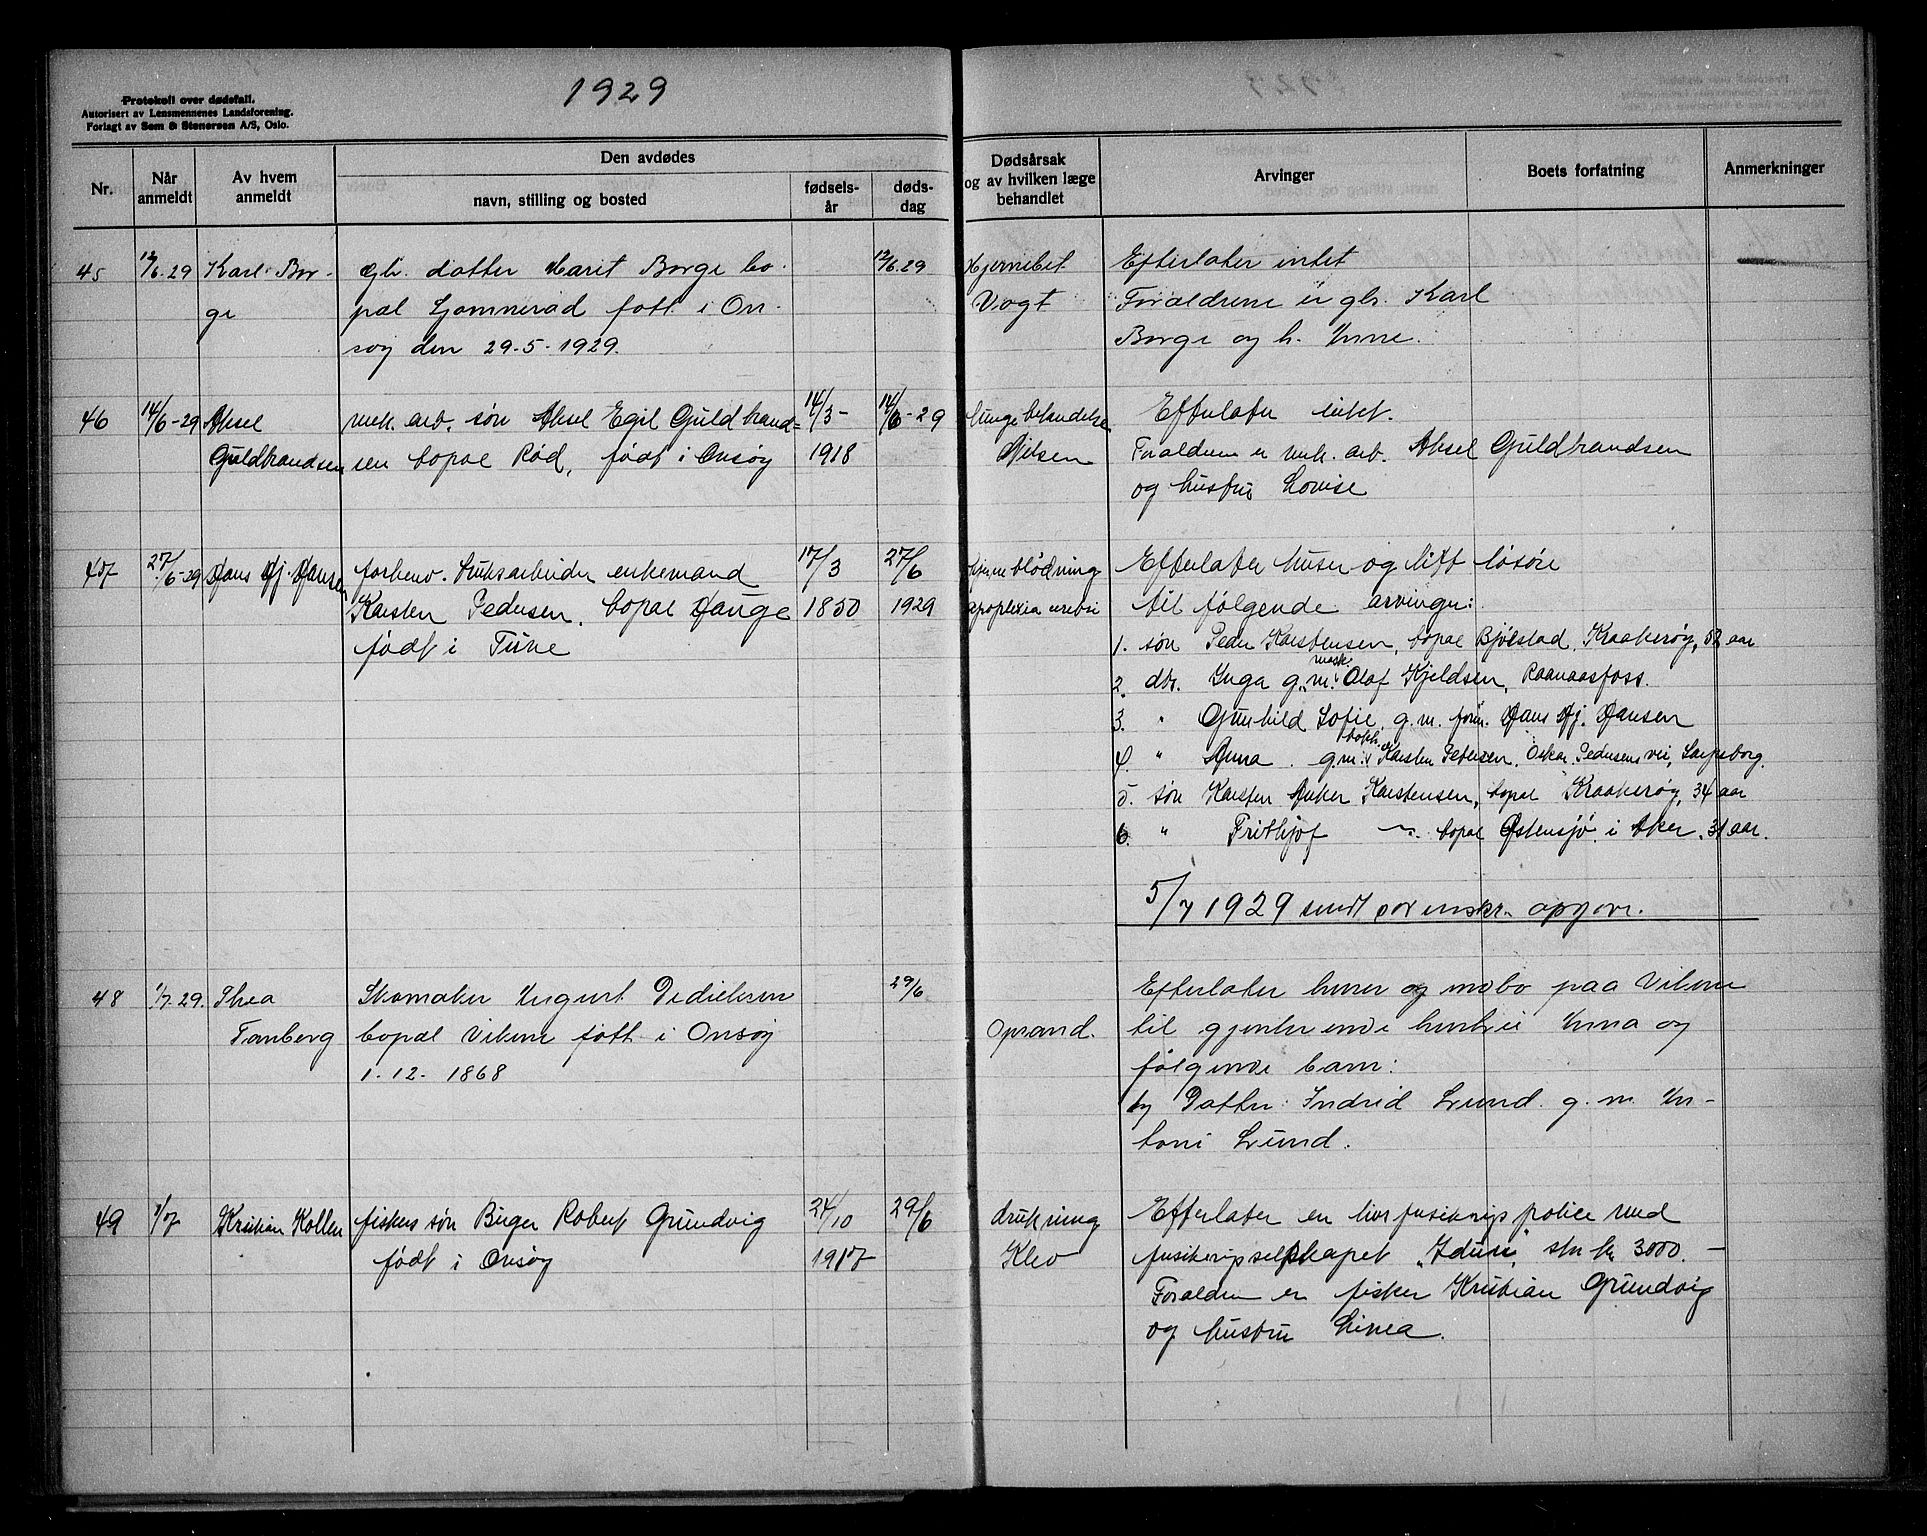 1929
Protokoll over dødsfall.
Autorisert av Lensmennenes Landsforening.
Forlagt av Sem & Stenersen A/S, Oslo.
Nr.
Når anmeldt
Av hvem anmeldt
Den avdødes
navn, stilling og bosted
fødsels-år
døds-dag
Dødsårsak og av hvilken læge behandlet
Arvinger
Boets forfatning
Anmerkninger
45 12/6-29 Karl Bor- gbr. datter Marit Borge bo- 12/6.29 Hjernebet. Efterlater intet
ge pæl Gommerød født i On- Vogt Forældrene er gbr. Karl
søy den 29-5-1929. Borge og h. Anne.
46 14/6-29 Aksel mek. arb. søn Aksel Egil Guldbrand= 14/3- 14/6-29 Efterlater intet.
Guldbrandsen sen bopæl Rød, født i Onsøy 1918 Nilsen Forældrene er mek. arb. Aksel Guldbrandsen
og hustru Lovise
47 27/6-29 Hans Hj. Hansen forhenv. bruksarbeider enkemand 17/3 27/6 hjerneblødning Efterlater huser og litt løsøre
Karsten Pedersen, bopæl Hauge 1850 1929 apoplexia cerebri til følgende arvinger:
født i Tune 1. søn Peder Karstensen, bopæl Bjølstad, Kraakerøy, 52 aar
2. dtr. Inga g.m. mask. Olaf Kjeldsen, Raanaasfoss.
3. " Gunhild Sofie g.m. form. Hans Hj. Hansen
4. " Anna g.m. Karsten Petersen, Oskar Pedersens vei, Sarpsborg.
5. søn Karsten Anker Karstensen, bopæl Kraakerøy, 34 aar
6. " Frithjof — bopæl Østensjø i Aker, 31 aar.
5/7 1929 sendt sorenskr. opgave.
48 1/7-29. Thea Skomaker August Didriksen 29/6 Efterlater huser og indbo paa Vikene
Tanberg bopæl Vikene født i Onsøy Opsand. til gjenlevende hustru Anna og
1-12-1868 følgende barn:
1) Datter Indrid Lund g.m. An-
toni Lund.
49 1/7 Kristian Kollen fiskers søn Birger Robert Grundvig 24/10 29/6 drukning Efterlater en livsforsikrings police med
født i Onsøy 1917 Klev forsikringsselskapet "Idun" stor kr. 3000.—
Forældrene er fisker Kristian Grundvig
og hustru Linea.